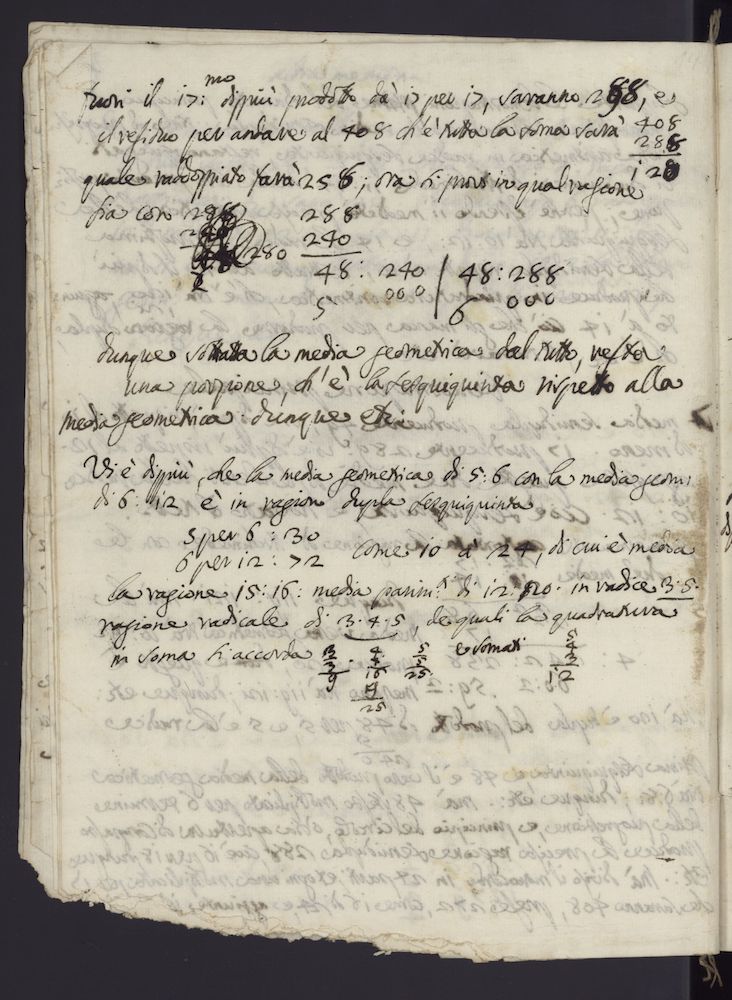 fuori il 17:mo dippiù prodotto da 17 per 17, saranno 288, e
il residuo per andare al 408 ch'è tutta la soma sarà 408
288
128
quale raddoppiato sarà 256; ora si provi in qual ragione
sia con 288 288
280 240
48: 240 / 48:288
5 000 6 000
dunque sottratta la media geometrica dal tutto, resta
una porzione, ch'è la sesquiquinta rispetto alla
media geometrica. dunque etc:
Vi è dippiù, che la media geometrica di 5:6 con la media geom:
di 6:12 è in ragion dupla sesquiquinta
5 per 6: 30
6 per 12: 72 come 10 à 24, di cui è media
la ragione 15:16: media parim.te di 12:20. in radice 3.5.
ragione radicale di 3.4.5, de quali la quadratura
in soma si accorda 3 4 5 e somati 5
3 4 5 4
9 16 25 3
9 12
25